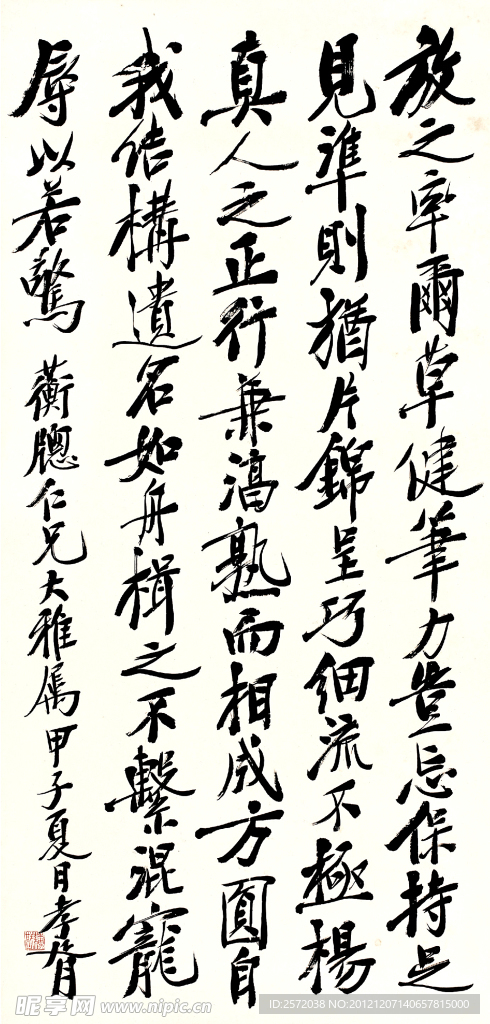 放之率爾草健筆力豈忘保持足
見準則猶片錦呈巧細流不極楊
真人之正行兼濡熟而相成方圓自
我結構遺名如舟楫之不繫混寵
辱以若驚
蘅牕仁兄大雅属甲子夏日孝胥
昵享网 www.nipic.cn
ID:2572038 NO:20121207140657815000